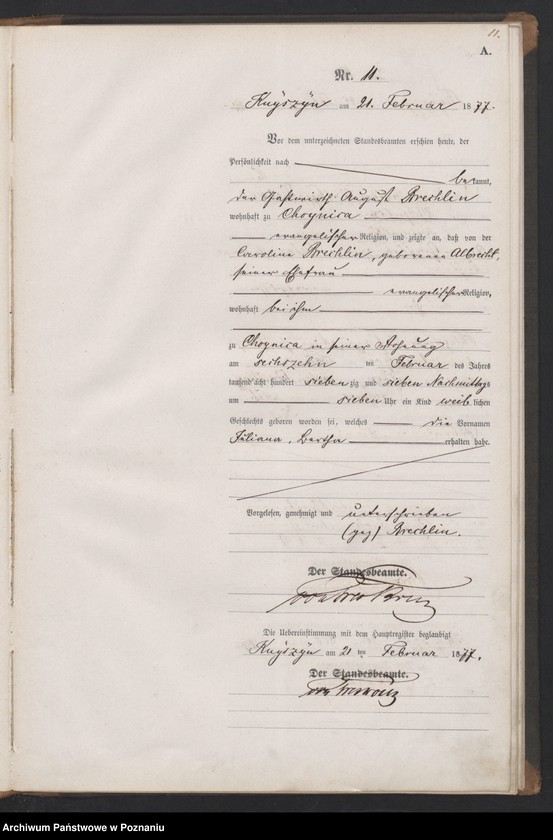 11.
A.
Nr. 11.
Knyszyn am 21. Februar 1877.
Vor dem unterzeichneten Standesbeamten erschien heute, der
Persönlichkeit nach
bekannt,
der Gastwirth August Brechlin
wohnhaft zu Choynica
evangelischer Religion, und zeigte an, daß von der
Caroline Brechlin, geborenen Albrecht,
seiner Ehefrau
evangelischer Religion,
wohnhaft bei ihm
zu Choynica in seiner Wohnung
am sechszehn ten Februar des Jahres
tausend acht hundert siebenzig und sieben Nachmittags
um sieben Uhr ein Kind weiblichen
Geschlechts geboren worden sei, welches die Vornamen
Juliana, Bertha erhalten habe.
Vorgelesen, genehmigt und unterschrieben
(gez) Brechlin.
Der Standesbeamte.
Die Uebereinstimmung mit dem Hauptregister beglaubigt
Knyszyn am 21 ten Februar 1877.
Der Standesbeamte.
Archiwum Państwowe w Poznaniu